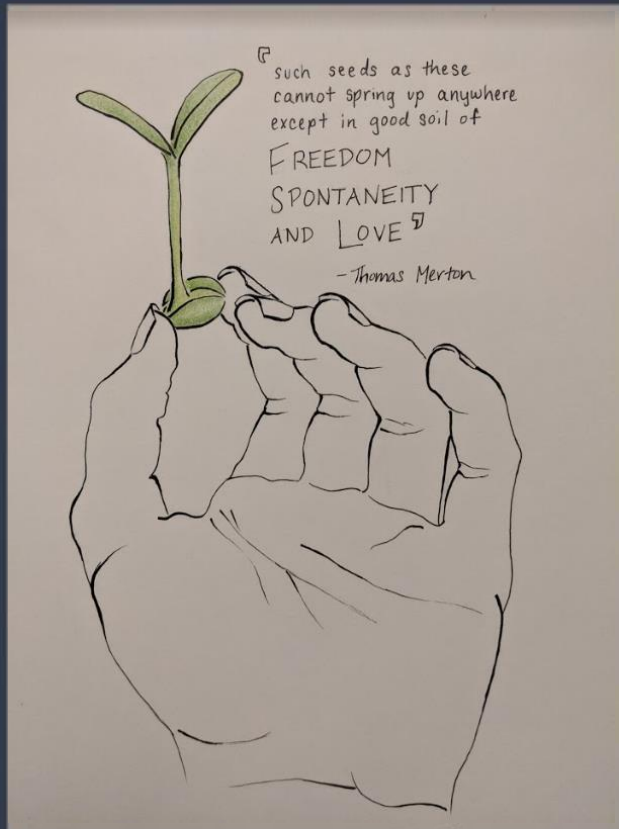 『such seeds as these
cannot spring up anywhere
except in good soil of
FREEDOM
SPONTANEITY
AND LOVE』
- Thomas Merton